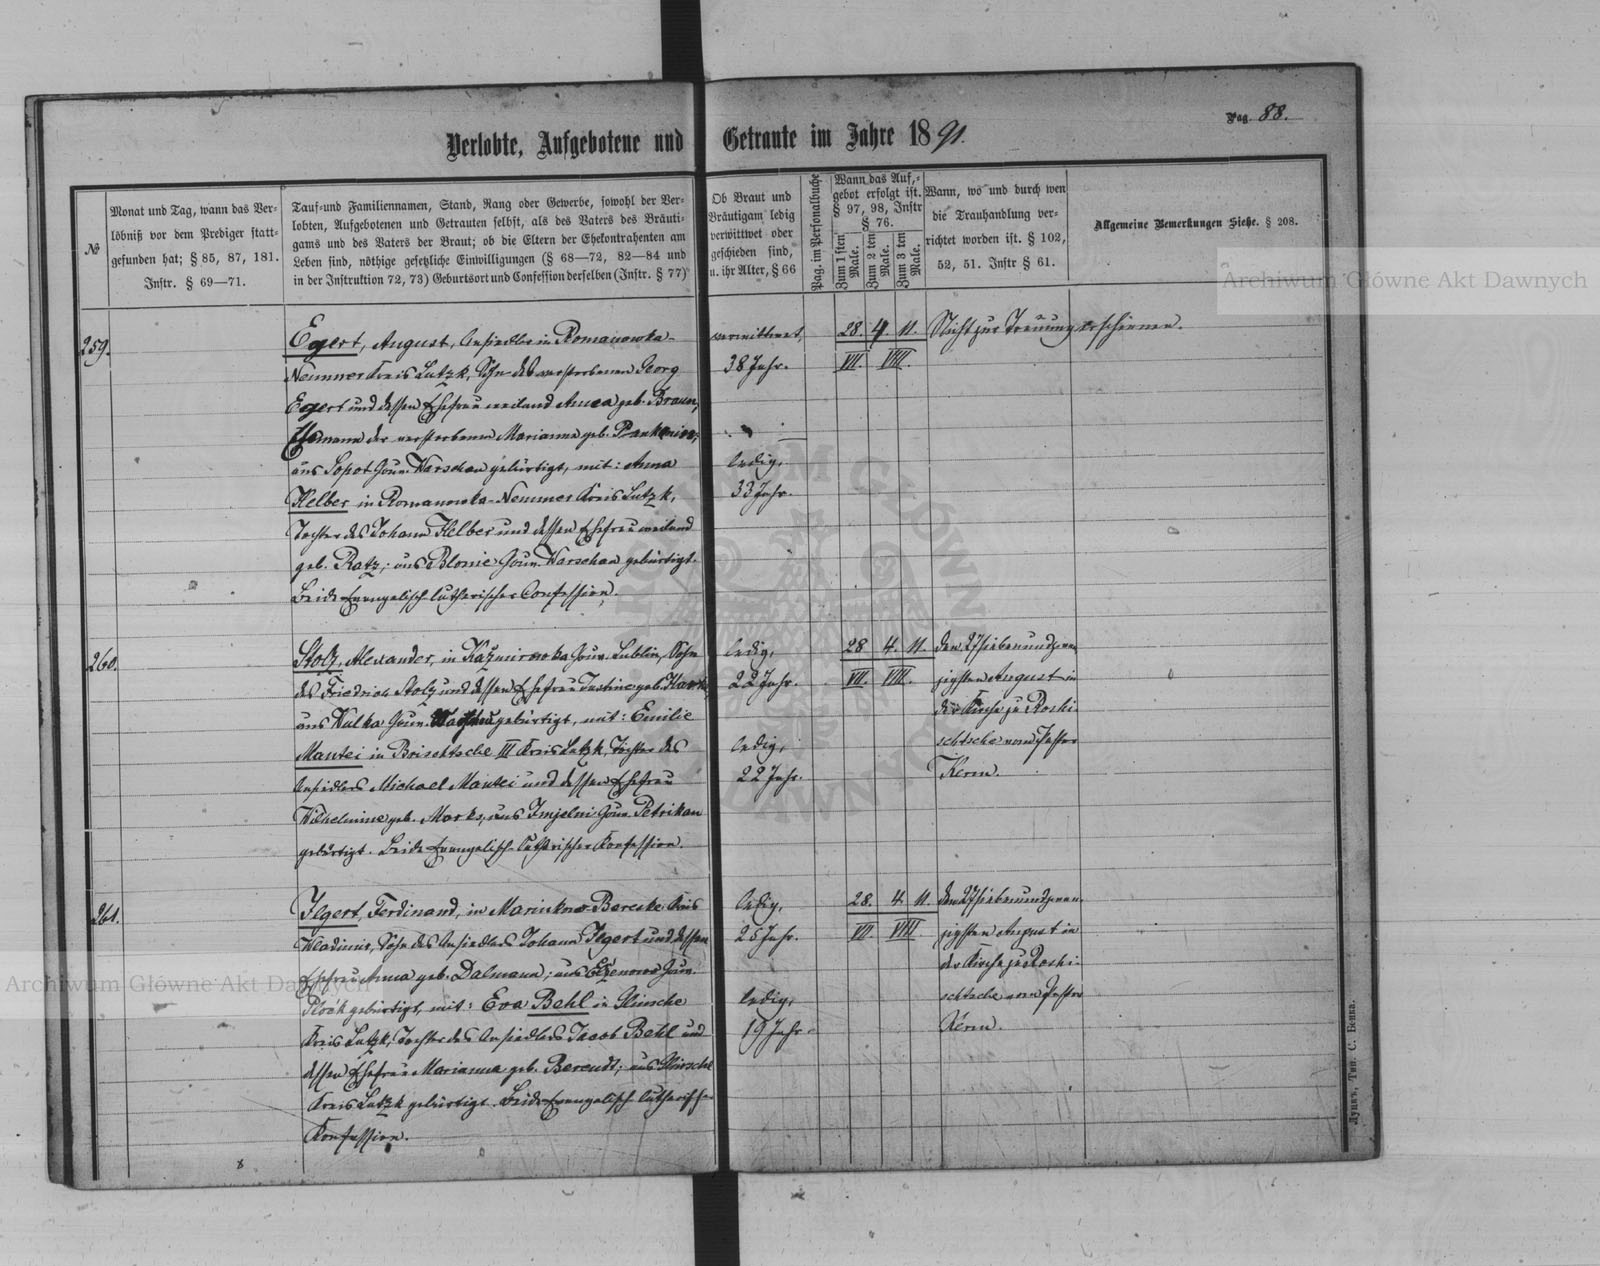 Pag. 88.
Verlobte, Aufgebotene und Getraute im Jahre 1891.
№
Monat und Tag, wann das Ver-
löbniß vor dem Prediger statt-
gefunden hat; § 85, 87, 181.
Instr. § 69—71.
Tauf- und Familiennamen, Stand, Rang oder Gewerbe, sowohl der Ver-
lobten, Aufgebotenen und Getrauten selbst, als des Vaters des Bräuti-
gams und des Vaters der Braut; ob die Eltern der Ehekontrahenten am
Leben sind, nöthige gesetzliche Einwilligungen (§ 68—72, 82—84 und
in der Instruktion 72, 73) Geburtsort und Confession derselben (Instr. § 77)
Ob Braut und
Bräutigam ledig
verwittwet oder
geschieden sind,
u. ihr Alter, § 66
Pag. im Personalbuche
Wann das Auf-
gebot erfolgt ist.
§ 97, 98, Instr
§ 76.
Zum 1 sten Male.
Zum 2 ten Male.
Zum 3 ten Male.
Wann, wo und durch wen
die Trauhandlung ver-
richtet worden ist. § 102,
52, 51. Instr § 61.
Allgemeine Bemerkungen Siehe. § 208.
259.
Egert, August, Ansiedler in Romanowka-
Nemmer Kreis Lutzk, Sohn des verstorbenen Georg
Egert und dessen Ehefrau weiland Anna geb. Braun,
Ehemann der verstorbenen Marianna geb.
aus Sopot Gouv. Warschau gebürtigt, mit: Anna
Helber in Romanowka-Nemmer Kreis Lutzk,
Tochter des Johann Helber und dessen Ehefrau weiland
geb. Ratz; aus Blonie Gouv. Warschau gebürtigt.
Beide Evangelisch-lutherischer Confession.
verwittwet,
38 Jahr.
ledig,
33 Jahr.
28. 4. 11.
VII. VIII.
Nicht zur Trauung erschienen.
260.
Stolz, Alexander, in Kazmirowka Gouv. Lublin, Sohn
des Friedrich Stolz und dessen Ehefrau Justine geb.
aus Wulka Gouv. Warschau gebürtigt, mit: Emilie
Mantei in Boischtsche III Kreis Lutzk, Tochter des
Ansiedlers Michael Mantei und dessen Ehefrau
Wilhelmine geb. Marks, aus Imjelni Gouv. Petrikau
gebürtigt. Beide Evangelisch-Lutherischer Konfession.
ledig,
22 Jahr.
ledig,
22 Jahr.
28. 4. 11.
VII. VIII.
den 27 siebenundzwan-
zigsten August in
der Kirche zu Roshi-
schtsche vom Pastor
Kerm.
261.
Ilgert, Ferdinand, in Marinkow-Bereske Kreis
Wladimir, Sohn des Ansiedlers Johann Ilgert und dessen
Ehefrau Anna geb. Dalmann; aus Elzenowo Gouv.
Plozk gebürtigt, mit: Eva Behl in Klinsche
Kreis Lutzk, Tochter des Ansiedlers Jacob Behl und
dessen Ehefrau Marianna geb. Berendt; aus Klinsche
Kreis Lutzk gebürtigt. Beide Evangelisch-lutherischer
Konfession.
ledig,
25 Jahr.
ledig,
19 Jahr.
28. 4. 11.
VII. VIII
den 27 siebenundzwan-
zigsten August in
der Kirche zu Roshi-
schtsche vom Pastor
Kerm.
Луцкъ, Тип. С. Бенва.
Archiwum Główne Akt Dawnych
Archiwum Główne Akt Dawnych